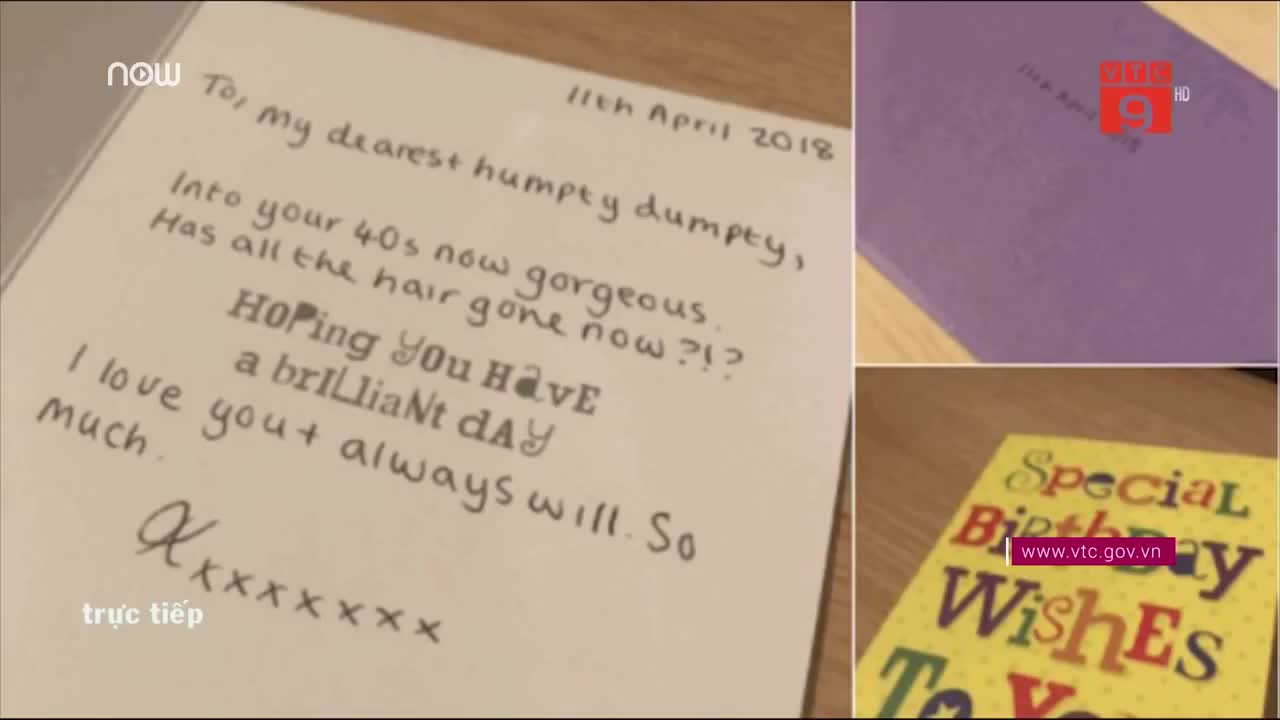 now
To, My dearest humpty dumpty,
11th April 2018
Into your 40s now gorgeous.
Has all the hair gone now?!?
Hoping you have
a brilliant day
I love you + always will. So
much.
xxxxxxxx
trực tiếp
VTC
9 HD
11th April 2018
Special
Birthday
Wishes
To You
www.vtc.gov.vn